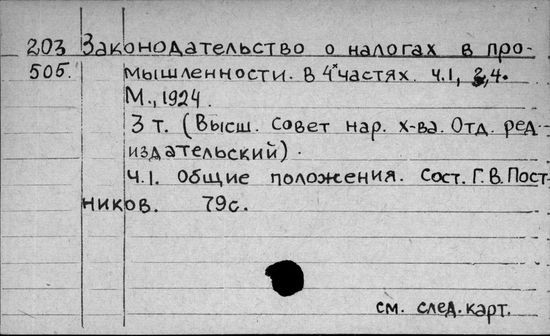 203 Законодательство о налогах в про-
505. мышленности. В 4х частях. ч.1, 2,4.
М., 1924.
3 т. (Высш. Совет нар. х-ва. Отд. ред
издательский).
ч.1. Общие положения. Сост. Г.В. Пост-
ников. 79с.
см. след. карт.